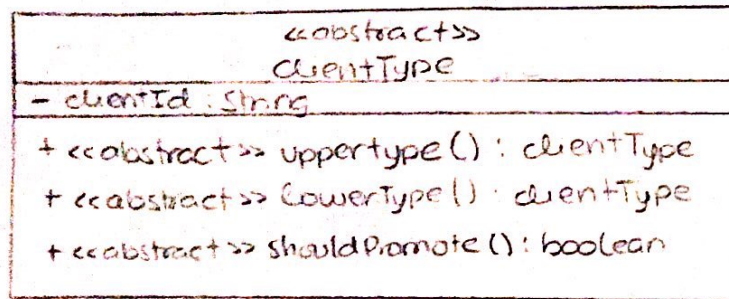 <<abstract>>
ClientType
- clientId : String
+ <<abstract>> uppertype() : clientType
+ <<abstract>> LowerType() : clientType
+ <<abstract>> shouldPromote() : boolean